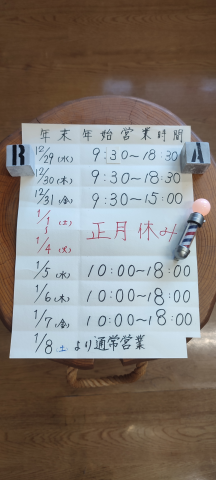 R
A
年末年始営業時間
12/29(水) 9:30〜18:30
12/30(木) 9:30〜18:30
12/31(金) 9:30〜15:00
1/1(土)
〜
1/4(火)
正月休み
1/5(水) 10:00〜18:00
1/6(木) 10:00〜18:00
1/7(金) 10:00〜18:00
1/8土より通常営業